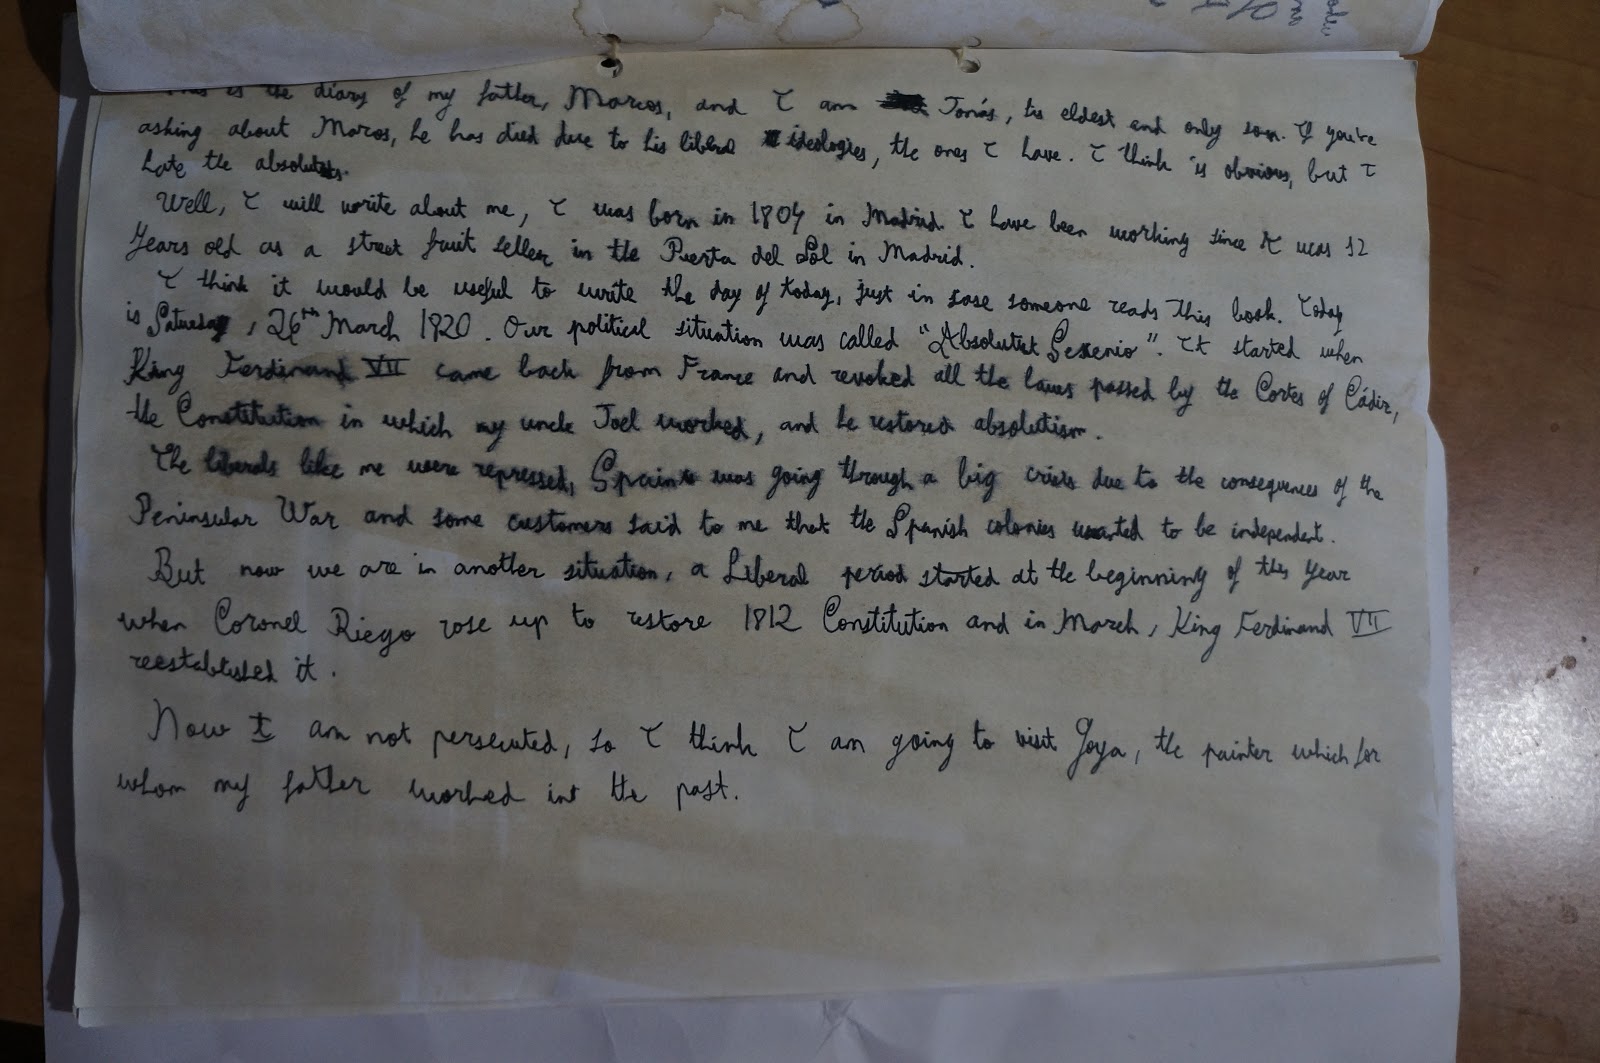 This is the diary of my father, Marcos, and I am Tomás, his eldest and only son. If you're
asking about Marcos, he has died due to his liberal ideologies, the ones I have. I think is obvious, but I
hate the absolutists.
Well, I will write about me, I was born in 1804 in Madrid. I have been working since I was 12
years old as a street fruit seller in the Puerta del Sol in Madrid.
I think it would be useful to write the day of today, just in case someone reads this book. Today
is Saturday, 26th March 1820. Our political situation was called "Absolutist Sexenio". It started when
King Ferdinand VII came back from France and revoked all the laws passed by the Cortes of Cádiz,
the Constitution in which my uncle Joel worked, and he restored absolutism.
The liberals like me were repressed, Spain was going through a big crisis due to the consequences of the
Peninsular War and some customers said to me that the Spanish colonies wanted to be independent.
But now we are in another situation, a Liberal period started at the beginning of this year
when Coronel Riego rose up to restore 1812 Constitution and in March, King Ferdinand VII
reestablished it.
Now I am not persecuted, so I think I am going to visit Goya, the painter which for
whom my father worked int the past.